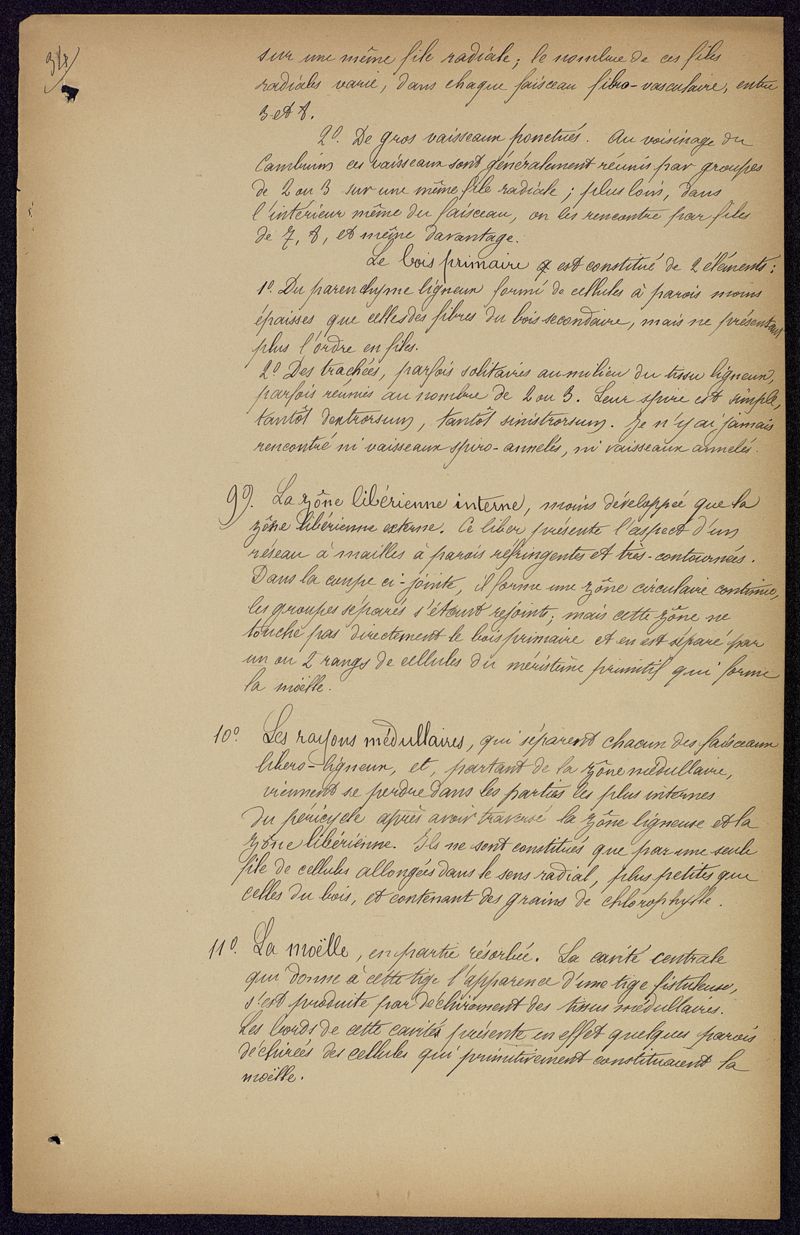 34
sur une même file radiale; le nombre de ces files
radiales varie, dans chaque faisceau fibro-vasculaire, entre
3 et 8.
2º. De gros vaisseaux ponctués. Au voisinage du
Cambium ces vaisseaux sont généralement réunis par groupes
de 2 ou 3 sur une même file radiale; plus loin, dans
l'intérieur même du faisceau, on les rencontre par files
de 7, 8, et même davantage.
Le bois primaire est constitué de 2 éléments:
1º Du parenchyme ligneux formé de cellules à parois moins
épaisses que celles des fibres du bois secondaire, mais ne présentant
plus l'ordre en files.
2º Des trachées, parfois solitaires au milieu du tissu ligneux,
parfois réunies au nombre de 2 ou 3. Leur spire est simple,
tantôt dextrorsum, tantôt sinistrorsum. Je n'y ai jamais
rencontré ni vaisseaux spiro-annelés, ni vaisseaux annelés.
9º. La zône libérienne interne, moins développée que la
zône libérienne externe. Ce liber présente l'aspect d'un
réseau à mailles à parois réfringentes et très-contournées.
Dans la coupe ci-jointe, il forme une zône circulaire continue,
les groupes séparés s'étant rejoints; mais cette zône ne
touche pas directement le bois primaire et en est séparé par
un ou 2 rangs de cellules du méristème primitif qui forme
la moëlle.
10º Les rayons médullaires, qui séparent chacun des faisceaux
libero-ligneux, et, partant de la zône médullaire,
viennent se perdre dans les parties les plus internes
du péricycle après avoir traversé la zône ligneuse et la
zône libérienne. Ils ne sont constitués que par une seule
file de cellules allongées dans le sens radial, plus petites que
celles du bois, et contenant des grains de chlorophylle.
11º. La moëlle, en partie résorbée. La cavité centrale
qui donne à cette tige l'apparence d'une tige fistuleuse,
s'est produite par déchirement des tissus médullaires.
Les bords de cette cavités présente en effet quelques parois
déchirées des cellules qui primitivement constituaient la
moëlle.